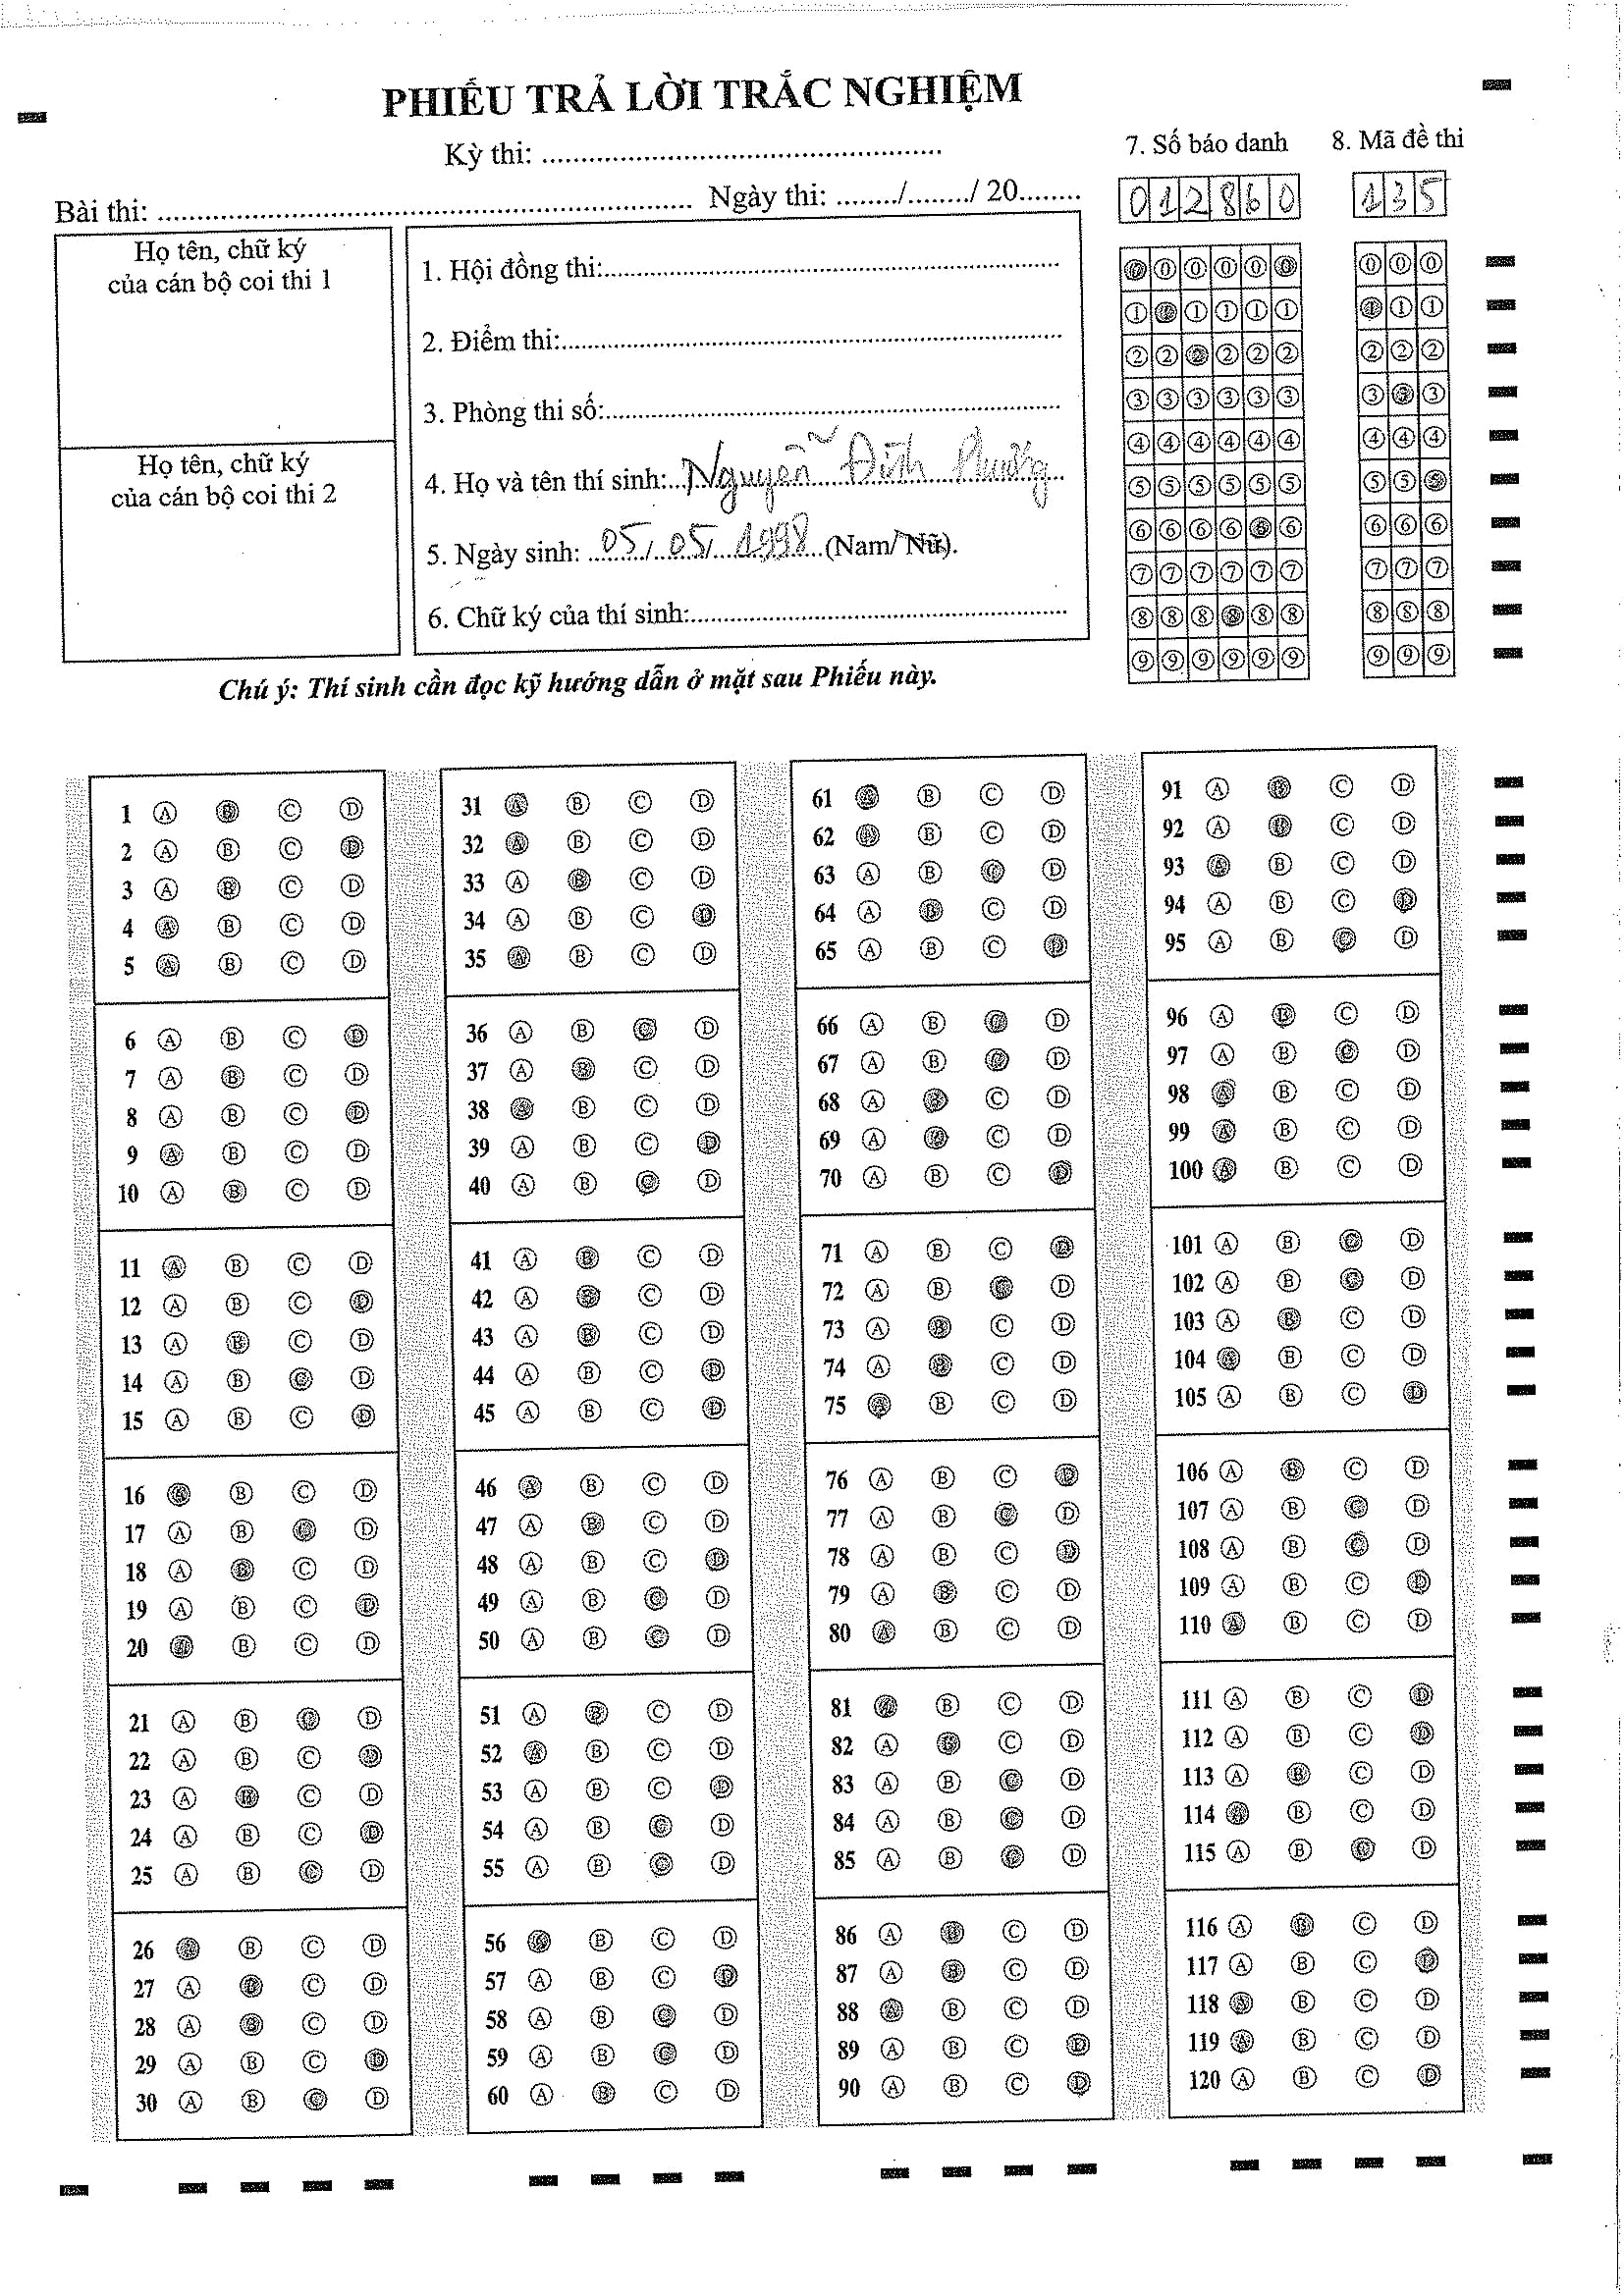 PHIẾU TRẢ LỜI TRẮC NGHIỆM
Kỳ thi: ..........
Bài thi: .......... Ngày thi: ......../......../ 20........
7. Số báo danh 8. Mã đề thi
012860 135
Họ tên, chữ ký
của cán bộ coi thi 1
Họ tên, chữ ký
của cán bộ coi thi 2
1. Hội đồng thi:..........
2. Điểm thi:..........
3. Phòng thi số:..........
4. Họ và tên thí sinh: Nguyễn Đình
5. Ngày sinh: 05/05/1998 (Nam/Nữ).
6. Chữ ký của thí sinh:..........
Chú ý: Thí sinh cần đọc kỹ hướng dẫn ở mặt sau Phiếu này.
0 0 0 0 0 0 0 0 0
1 1 1 1 1 1 1 1 1
2 2 2 2 2 2 2 2 2
3 3 3 3 3 3 3 3 3
4 4 4 4 4 4 4 4 4
5 5 5 5 5 5 5 5 5
6 6 6 6 6 6 6 6 6
7 7 7 7 7 7 7 7 7
8 8 8 8 8 8 8 8 8
9 9 9 9 9 9 9 9 9
1 A B C D
2 A B C D
3 A B C D
4 A B C D
5 A B C D
6 A B C D
7 A B C D
8 A B C D
9 A B C D
10 A B C D
11 A B C D
12 A B C D
13 A B C D
14 A B C D
15 A B C D
16 A B C D
17 A B C D
18 A B C D
19 A B C D
20 A B C D
21 A B C D
22 A B C D
23 A B C D
24 A B C D
25 A B C D
26 A B C D
27 A B C D
28 A B C D
29 A B C D
30 A B C D
31 A B C D
32 A B C D
33 A B C D
34 A B C D
35 A B C D
36 A B C D
37 A B C D
38 A B C D
39 A B C D
40 A B C D
41 A B C D
42 A B C D
43 A B C D
44 A B C D
45 A B C D
46 A B C D
47 A B C D
48 A B C D
49 A B C D
50 A B C D
51 A B C D
52 A B C D
53 A B C D
54 A B C D
55 A B C D
56 A B C D
57 A B C D
58 A B C D
59 A B C D
60 A B C D
61 A B C D
62 A B C D
63 A B C D
64 A B C D
65 A B C D
66 A B C D
67 A B C D
68 A B C D
69 A B C D
70 A B C D
71 A B C D
72 A B C D
73 A B C D
74 A B C D
75 A B C D
76 A B C D
77 A B C D
78 A B C D
79 A B C D
80 A B C D
81 A B C D
82 A B C D
83 A B C D
84 A B C D
85 A B C D
86 A B C D
87 A B C D
88 A B C D
89 A B C D
90 A B C D
91 A B C D
92 A B C D
93 A B C D
94 A B C D
95 A B C D
96 A B C D
97 A B C D
98 A B C D
99 A B C D
100 A B C D
101 A B C D
102 A B C D
103 A B C D
104 A B C D
105 A B C D
106 A B C D
107 A B C D
108 A B C D
109 A B C D
110 A B C D
111 A B C D
112 A B C D
113 A B C D
114 A B C D
115 A B C D
116 A B C D
117 A B C D
118 A B C D
119 A B C D
120 A B C D